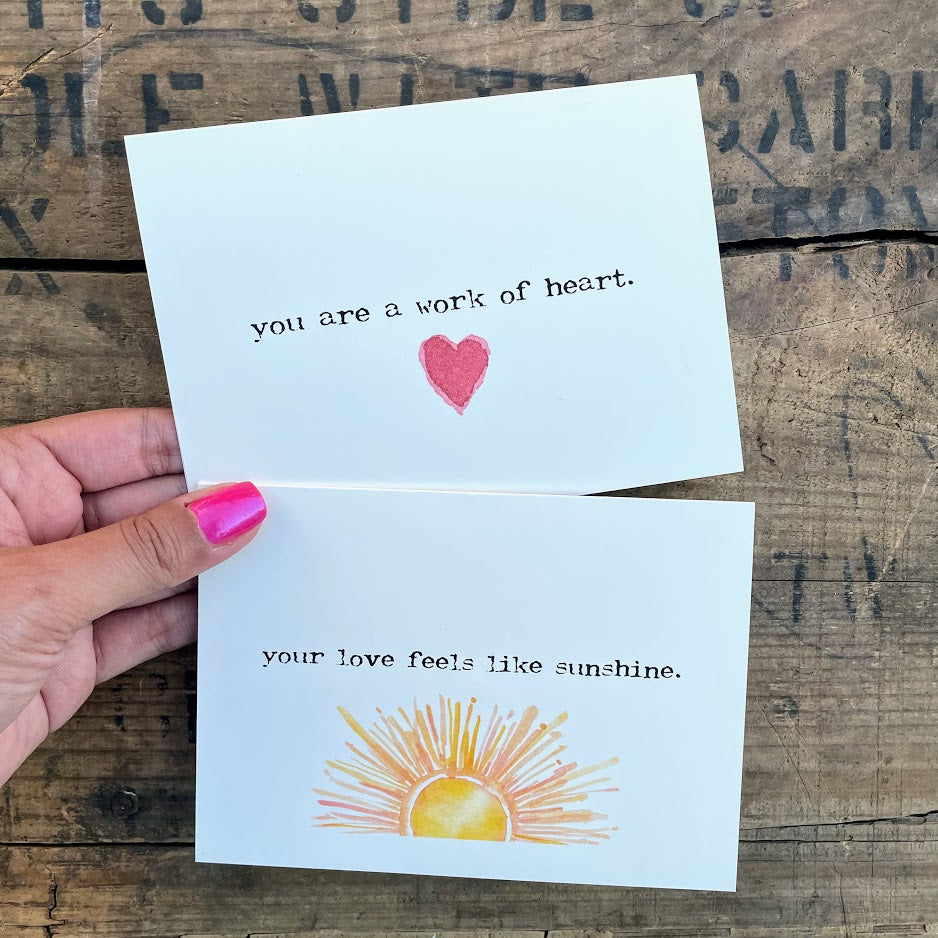 WITH CAR
you are a work of heart.
your love feels like sunshine.